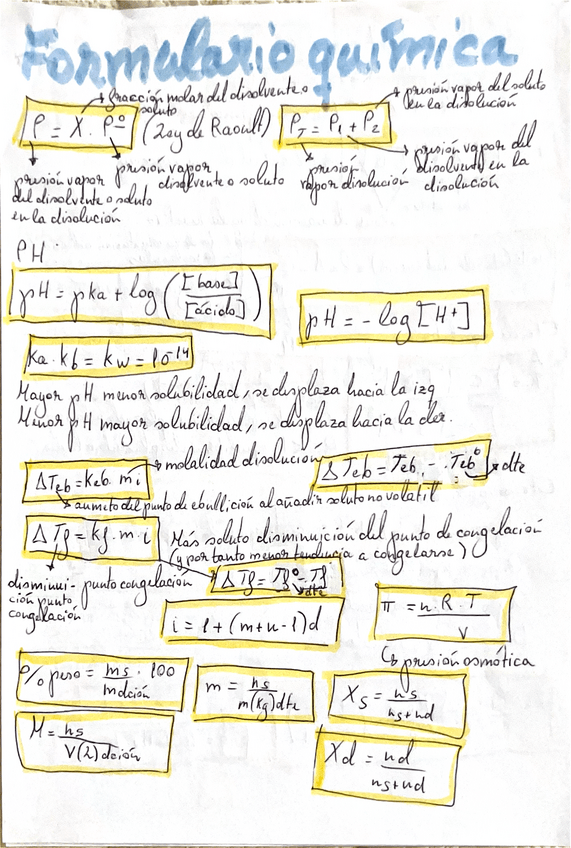 Formulario química
fracción molar del disolvente o soluto
presión vapor del soluto en la disolución
P = X · Pº (Ley de Raoult) P_T = P₁ + P₂
presión vapor del disolvente o soluto en la disolución
presión vapor disolvente o soluto
presión vapor disolución
presión vapor del disolvente en la disolución
PH:
pH = pka + log ([base]/[ácido])
pH = -log [H⁺]
Ka · kb = kw = 10⁻¹⁴
Mayor pH menor solubilidad, se desplaza hacia la izq
Menor pH mayor solubilidad, se desplaza hacia la der.
ΔTeb = Keb · m i molalidad disolución ΔTeb = Teb - Tebº dte
aumento del punto de ebullición al añadir soluto no volátil
ΔTf = kf · m · i Más soluto disminuición del punto de congelación
(y por tanto menor tendencia a congelarse)
disminución punto congelación
punto congelación
ΔTf = Tfº - Tf
dte
i = 1 + (m+n-1)d
π = n · R · T / V
presión osmótica
% peso = ms / mdción · 100
m = ns / m(kg)dte
Xs = ns / ns+nd
M = ns / V(L) dción
Xd = nd / ns+nd